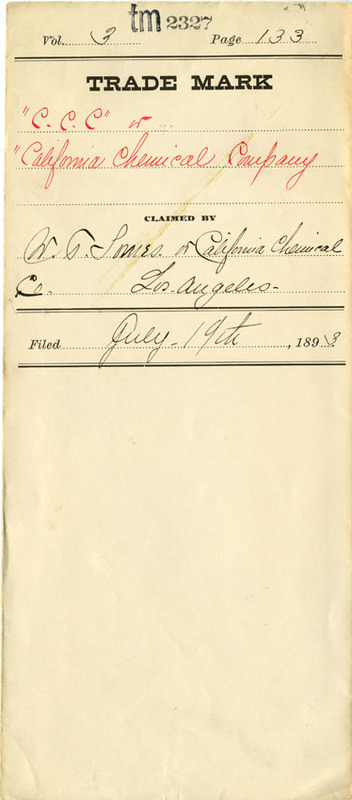 tm 2327
Vol. 3 Page 133
TRADE MARK
"C. C. C" or
"California Chemical Company
CLAIMED BY
W. T. Somes. or California Chemical
Co. Los. Angeles-
Filed July 19th, 1893